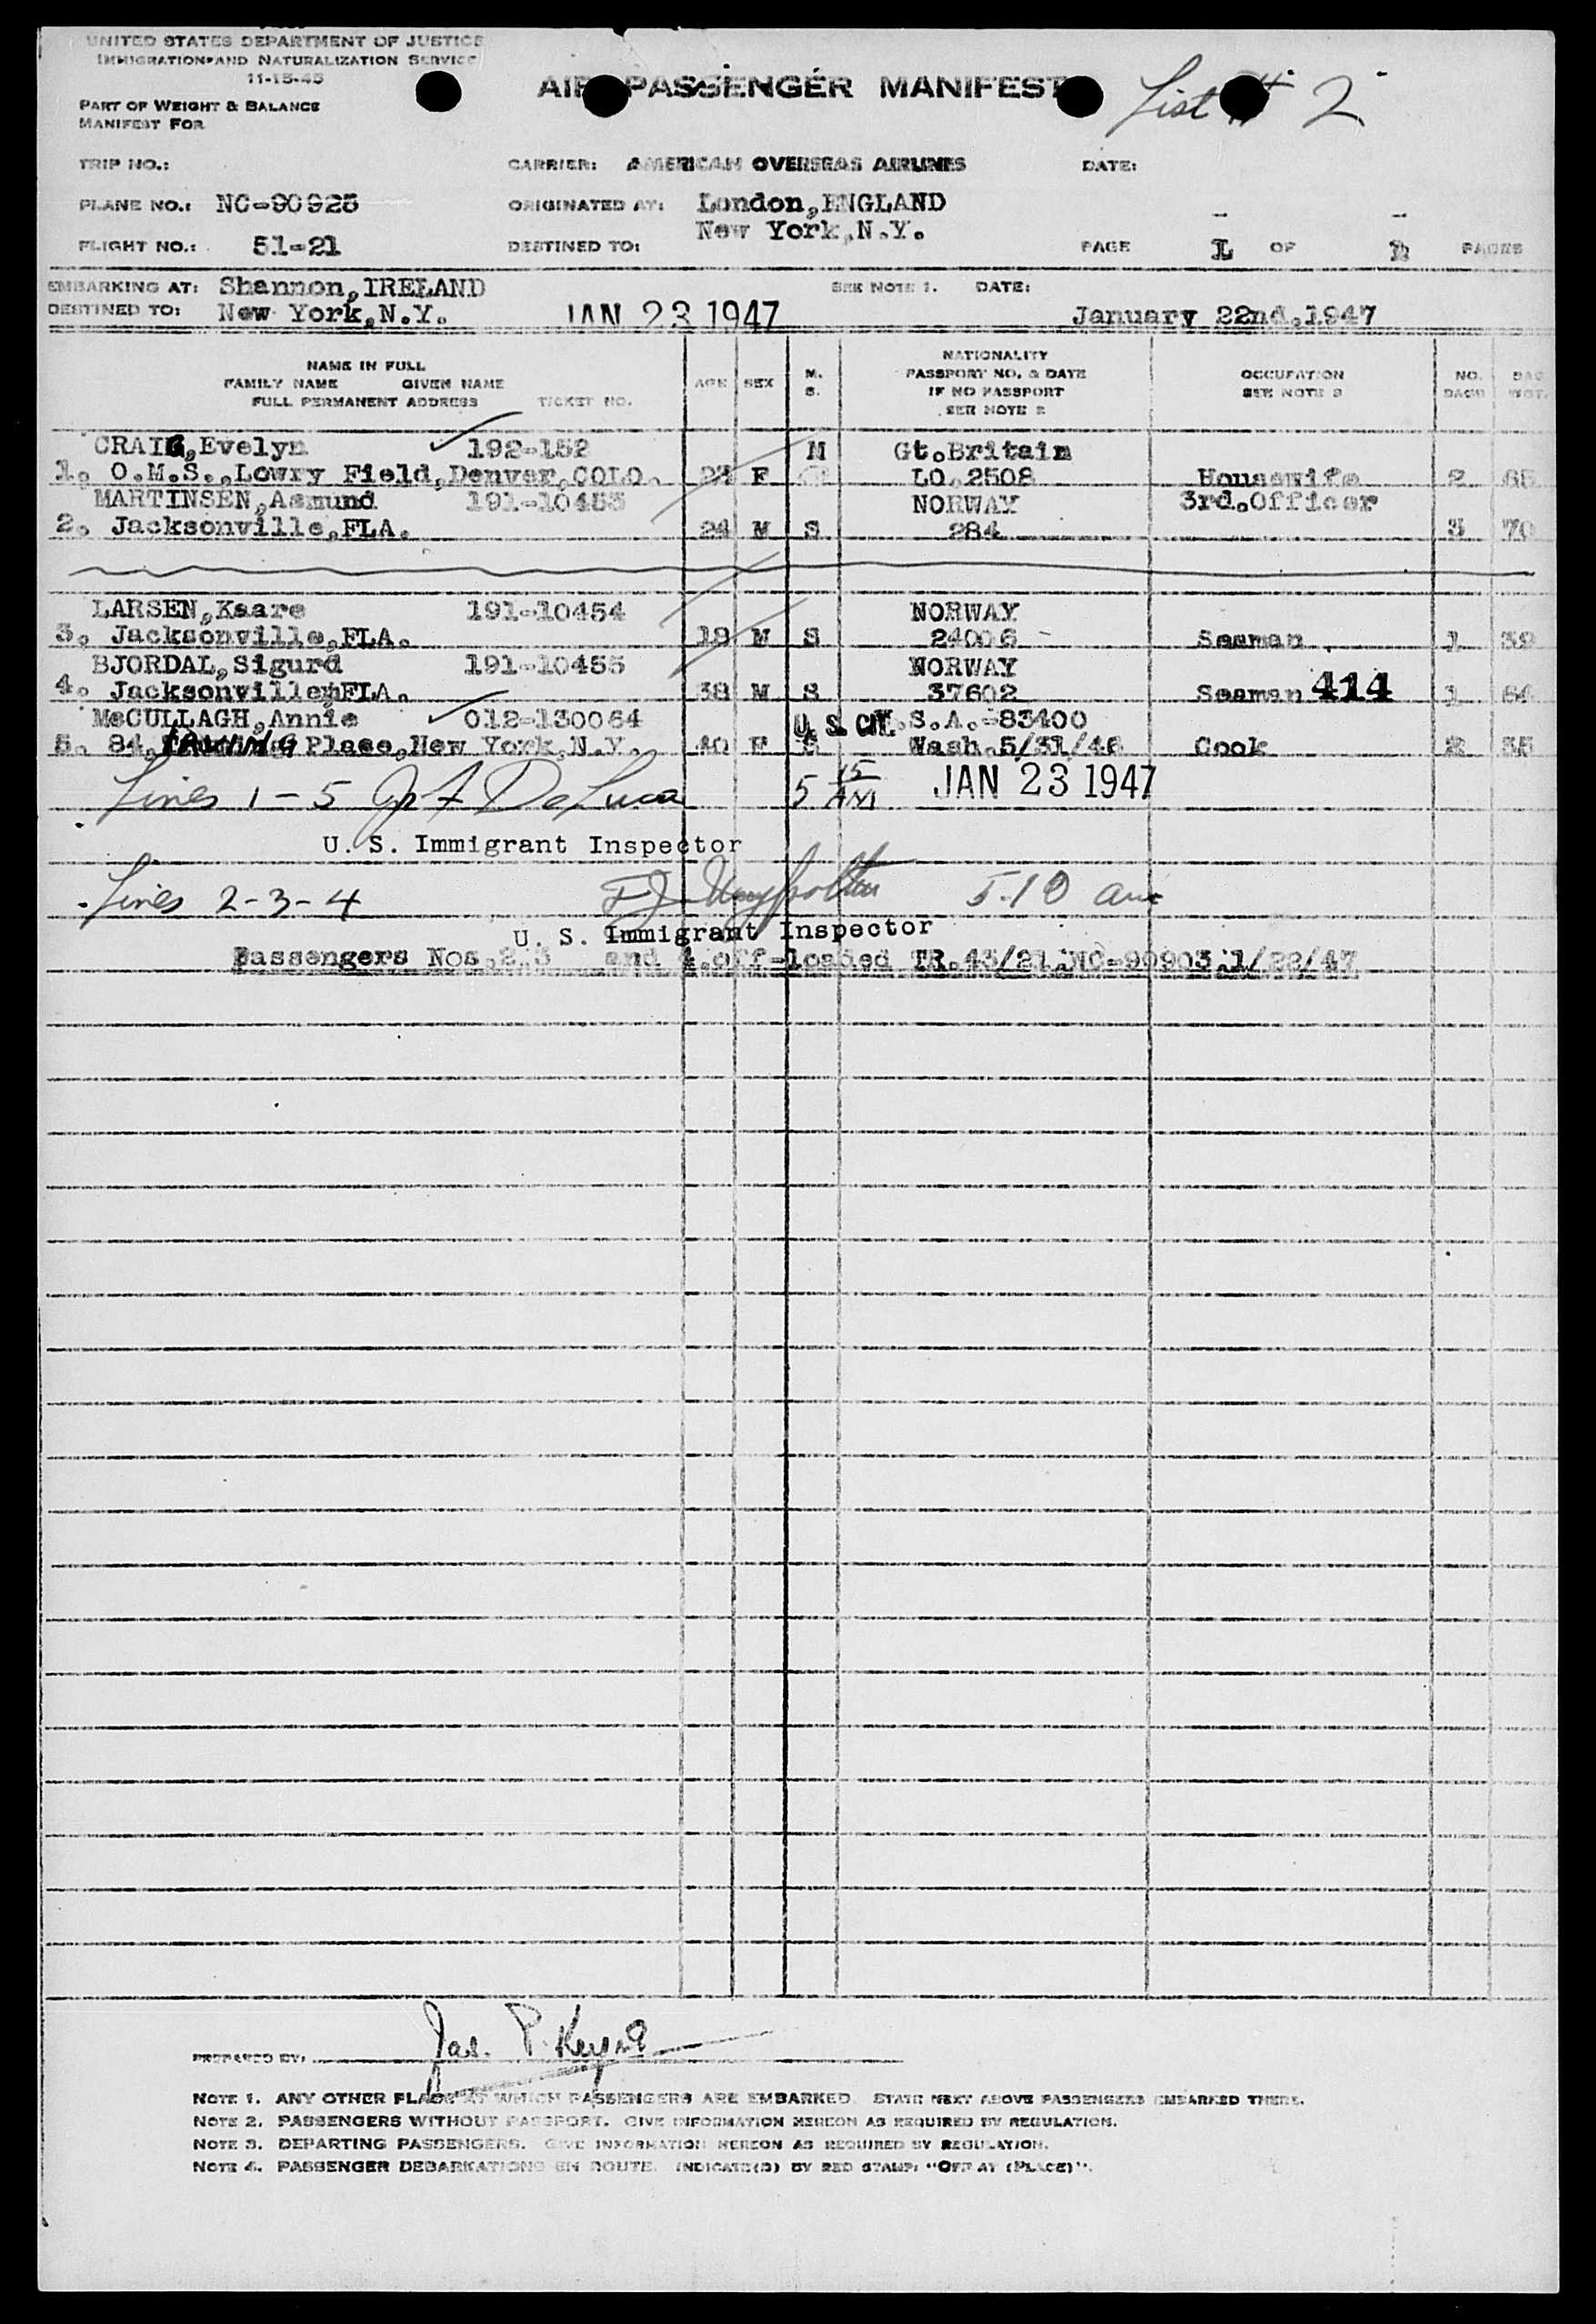 UNITED STATES DEPARTMENT OF JUSTICE
IMMIGRATION AND NATURALIZATION SERVICE
11-15-45
AIR PASSENGER MANIFEST
List # 2
PART OF WEIGHT & BALANCE
MANIFEST FOR
TRIP NO.: CARRIER: AMERICAN OVERSEAS AIRLINES DATE:
PLANE NO.: NC-90925 ORIGINATED AT: London,ENGLAND
FLIGHT NO.: 51-21 DESTINED TO: New York,N.Y. PAGE 1 OF PAGES
EMBARKING AT: Shannon,IRELAND SEE NOTE 1. DATE:
DESTINED TO: New York,N.Y. JAN 23 1947 January 22nd,1947
NAME IN FULL
FAMILY NAME GIVEN NAME
FULL PERMANENT ADDRESS TICKET NO.
AGE SEX M. S.
NATIONALITY
PASSPORT NO. & DATE
IF NO PASSPORT
SEE NOTE 2
OCCUPATION
SEE NOTE 3
NO. BAGS BAG WGT.
CRAIG,Evelyn 192-152 M Gt.Britain
1. O.M.S.,Lowry Field,Denver,COLO. F LO.2508 Housewife 2 65
MARTINSEN,Asmund 191-10453 NORWAY 3rd.Officer
2. Jacksonville,FLA. 24 M S 284 3 70
LARSEN,Kaare 191-10454 NORWAY
3. Jacksonville,FLA. 18 M S 24006 Seaman 1 39
BJORDAL,Sigurd 191-10455 NORWAY
4. Jacksonville,FLA. 38 M S 37602 Seaman 414 1 64
McCULLAGH,Annie 012-130064 U. S. CIT. S.A.-83400
5. 84,IRVING Place,New York,N.Y. 40 F S Wash.5/31/46 Cook 2 35
Lines 1-5 De Luca 5 15 AM JAN 23 1947
U. S. Immigrant Inspector
Lines 2-3-4 5.10 am
U. S. Immigrant Inspector
Passengers Nos.2,3 and 4.off-loaded TR.43/21,NC-90903,1/22/47
PREPARED BY: Jas. P. Keyne
NOTE 1. ANY OTHER PLACE AT WHICH PASSENGERS ARE EMBARKED. STATE NEXT ABOVE PASSENGERS EMBARKED THERE.
NOTE 2. PASSENGERS WITHOUT PASSPORT. GIVE INFORMATION HEREON AS REQUIRED BY REGULATION.
NOTE 3. DEPARTING PASSENGERS. GIVE INFORMATION HEREON AS REQUIRED BY REGULATION.
NOTE 4. PASSENGER DEBARKATIONS EN ROUTE. INDICATE(D) BY RED STAMP: "OFF AT (PLACE)".